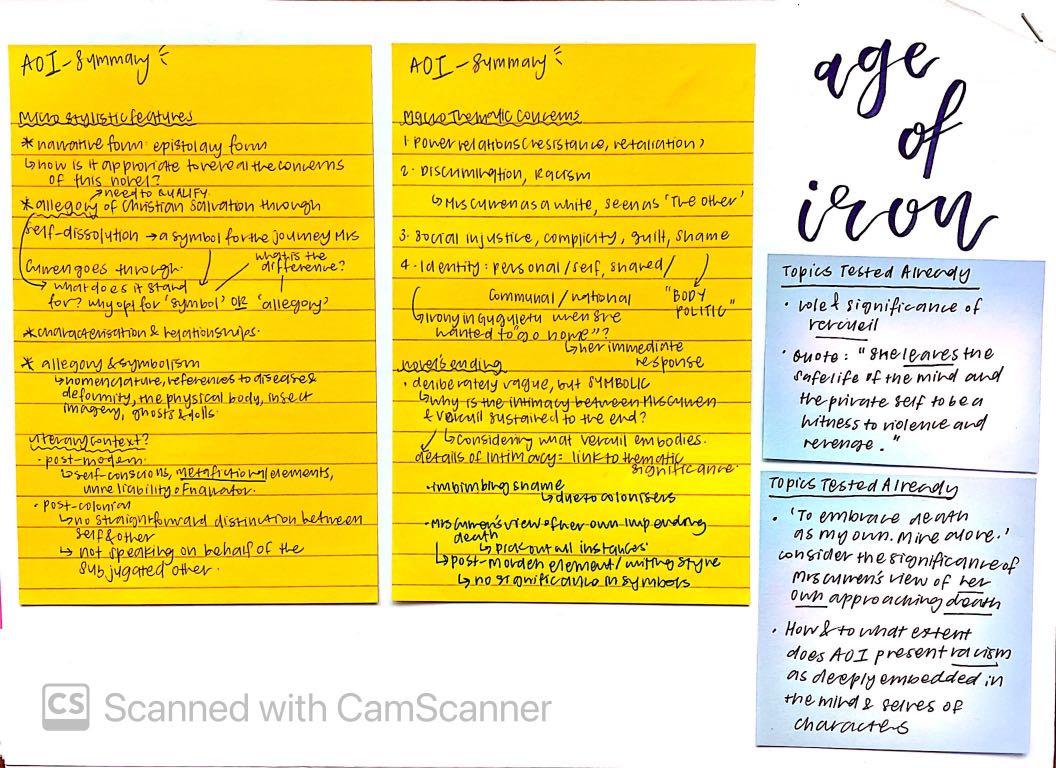 AOI - Summary
Micro stylistic features
* narrative form: epistolary form
↳ how is it appropriate to reveal the concerns
of this novel?
→ need to QUALIFY.
* allegory of Christian Salvation through
self-dissolution → a symbol for the journey Mrs
Curren goes through.
what is the
difference?
→ what does it stand
for? why opt for 'symbol' OR 'allegory'
* characterisation & relationships.
* allegory & symbolism
↳ nomenclature, references to disease &
deformity, the physical body, insect
imagery, ghosts & dolls.
Literary context?
• post-modern
↳ self-conscious, metafictional elements,
unreliability of narrator.
• post-colonial
↳ no straightforward distinction between
self & other
↳ not speaking on behalf of the
subjugated other.
AOI - Summary
Macro Thematic Concerns
1. Power relations (resistance, retaliation)
2. Discrimination, Racism
↳ Mrs Curren as a white, seen as 'The other'
3. Social injustice, complicity, guilt, shame
4. Identity: personal/self, shared/
communal/national
"BODY
POLITIC"
irony in Guguletu when she
wanted to "go home"?
↳ her immediate
response
novel's ending
• deliberately vague, but SYMBOLIC
↳ why is the intimacy between Mrs Curren
& Vercuil sustained to the end?
↳ considering what Vercuil embodies.
details of intimacy: link to thematic
significance.
• imbimbing shame
↳ due to colonisers
• Mrs Curren's view of her own impending
death
↳ pick out all instances.
↳ post-morden element/writing style
↳ no significance in symbols
age
of
iron
Topics Tested Already
• role & significance of
Vercueil
• Quote: "She leaves the
safe life of the mind and
the private self to be a
witness to violence and
revenge."
Topics Tested Already
• 'To embrace death
as my own. Mine alone.'
consider the significance of
Mrs Curren's view of her
own approaching death
• How & to what extent
does AOI present racism
as deeply embedded in
the mind & selves of
characters
CS Scanned with CamScanner